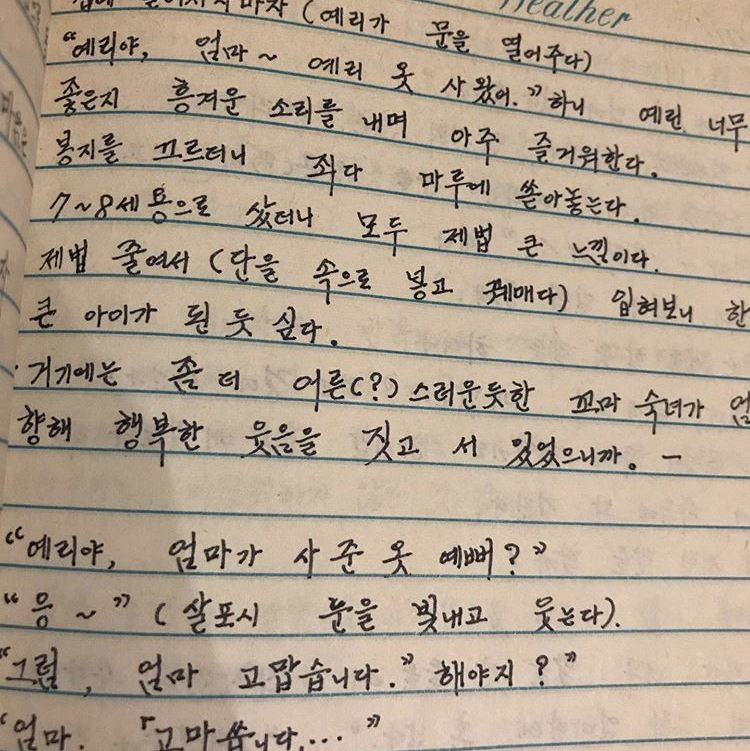 Heather
집에 들어서자마자 (예리가 문을 열어주다)
"예리야, 엄마~ 예리 옷 사왔어." 하니 예린 너무
좋은지 흥겨운 소리를 내며 아주 즐거워한다.
봉지를 끄르더니 죄다 마루에 쏟아놓는다.
7~8세용으로 샀더니 모두 제법 큰 느낌이다.
제법 줄여서 (단을 속으로 넣고 꿰매다) 입혀보니 한
큰 아이가 된 듯 싶다.
·거기에는 좀 더 어른(?)스러운듯한 꼬마 숙녀가 엄
향해 행복한 웃음을 짓고 서 있었으니까. -
"예리야, 엄마가 사 준 옷 예뻐?"
"응 ~" (살포시 눈을 빛내고 웃는다).
"그럼, 엄마 고맙습니다." 해야지?"
"엄마. 「고마씁니다...."